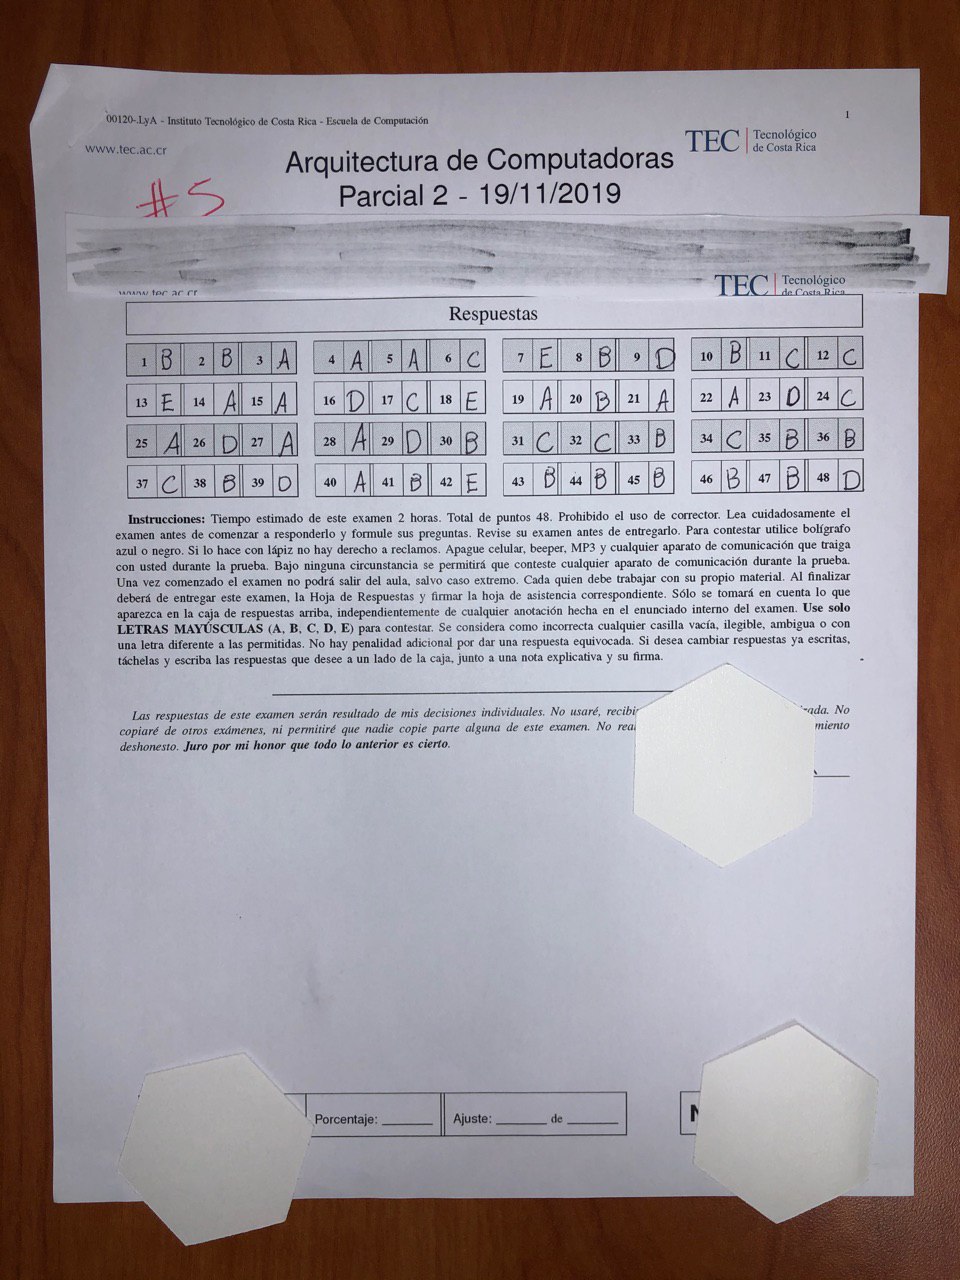 00120-.LyA - Instituto Tecnológico de Costa Rica - Escuela de Computación
1
www.tec.ac.cr
TEC | Tecnológico de Costa Rica
Arquitectura de Computadoras
Parcial 2 - 19/11/2019
#5
www.tec.ac.cr
TEC | Tecnológico de Costa Rica
Respuestas
1 B 2 B 3 A 4 A 5 A 6 C 7 E 8 B 9 D 10 B 11 C 12 C
13 E 14 A 15 A 16 D 17 C 18 E 19 A 20 B 21 A 22 A 23 D 24 C
25 A 26 D 27 A 28 A 29 D 30 B 31 C 32 C 33 B 34 C 35 B 36 B
37 C 38 B 39 D 40 A 41 B 42 E 43 B 44 B 45 B 46 B 47 B 48 D
Instrucciones: Tiempo estimado de este examen 2 horas. Total de puntos 48. Prohibido el uso de corrector. Lea cuidadosamente el
examen antes de comenzar a responderlo y formule sus preguntas. Revise su examen antes de entregarlo. Para contestar utilice bolígrafo
azul o negro. Si lo hace con lápiz no hay derecho a reclamos. Apague celular, beeper, MP3 y cualquier aparato de comunicación que traiga
con usted durante la prueba. Bajo ninguna circunstancia se permitirá que conteste cualquier aparato de comunicación durante la prueba.
Una vez comenzado el examen no podrá salir del aula, salvo caso extremo. Cada quien debe trabajar con su propio material. Al finalizar
deberá de entregar este examen, la Hoja de Respuestas y firmar la hoja de asistencia correspondiente. Sólo se tomará en cuenta lo que
aparezca en la caja de respuestas arriba, independientemente de cualquier anotación hecha en el enunciado interno del examen. Use solo
LETRAS MAYÚSCULAS (A, B, C, D, E) para contestar. Se considera como incorrecta cualquier casilla vacía, ilegible, ambigua o con
una letra diferente a las permitidas. No hay penalidad adicional por dar una respuesta equivocada. Si desea cambiar respuestas ya escritas,
táchelas y escriba las respuestas que desee a un lado de la caja, junto a una nota explicativa y su firma.
Las respuestas de este examen serán resultado de mis decisiones individuales. No usaré, No
copiaré de otros exámenes, ni permitiré que nadie copie parte alguna de este examen. No
deshonesto. Juro por mi honor que todo lo anterior es cierto.
Porcentaje: Ajuste: de